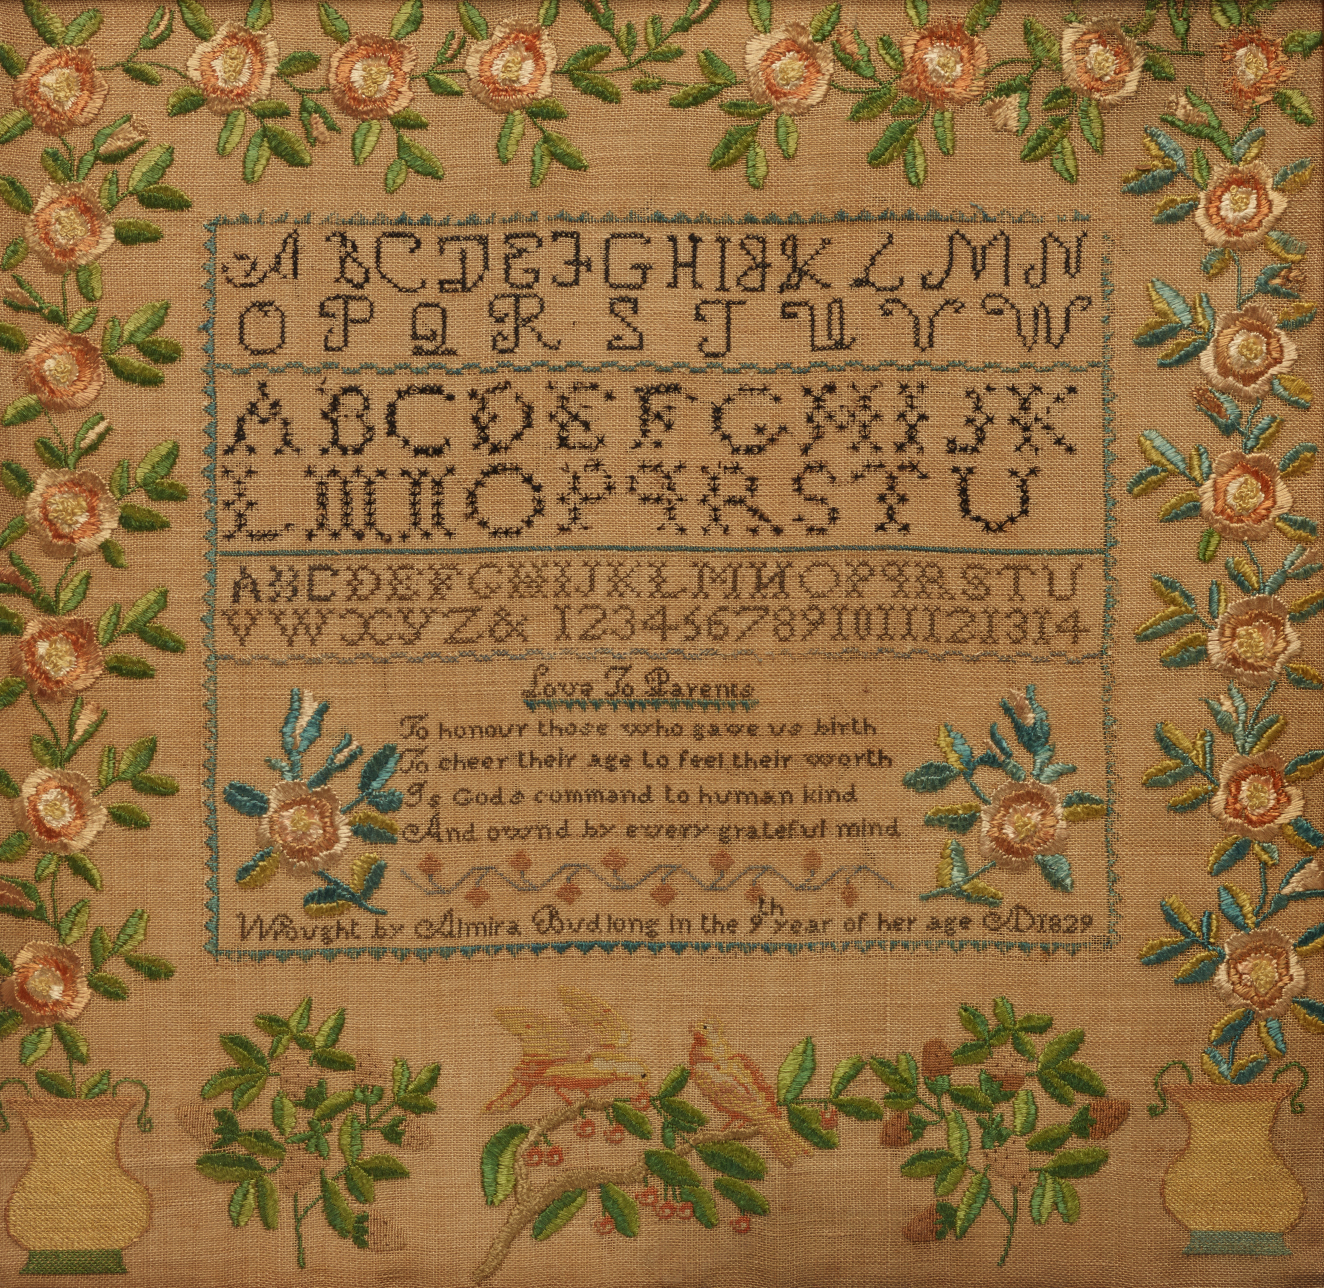 A B C D E F G H I J K L M N
O P Q R S T U V W
A B C D E F G H I J K
L M N O P Q R S T U
A B C D E F G H I J K L M N O P Q R S T U
V W X Y Z & 1 2 3 4 5 6 7 8 9 10 11 12 13 14
Love To Parents
To honour those who gave us birth
To cheer their age to feel their worth
Is Gods command to human kind
And ownd by every grateful mind
Wrought by Almira Budlong in the 9th year of her age AD1829